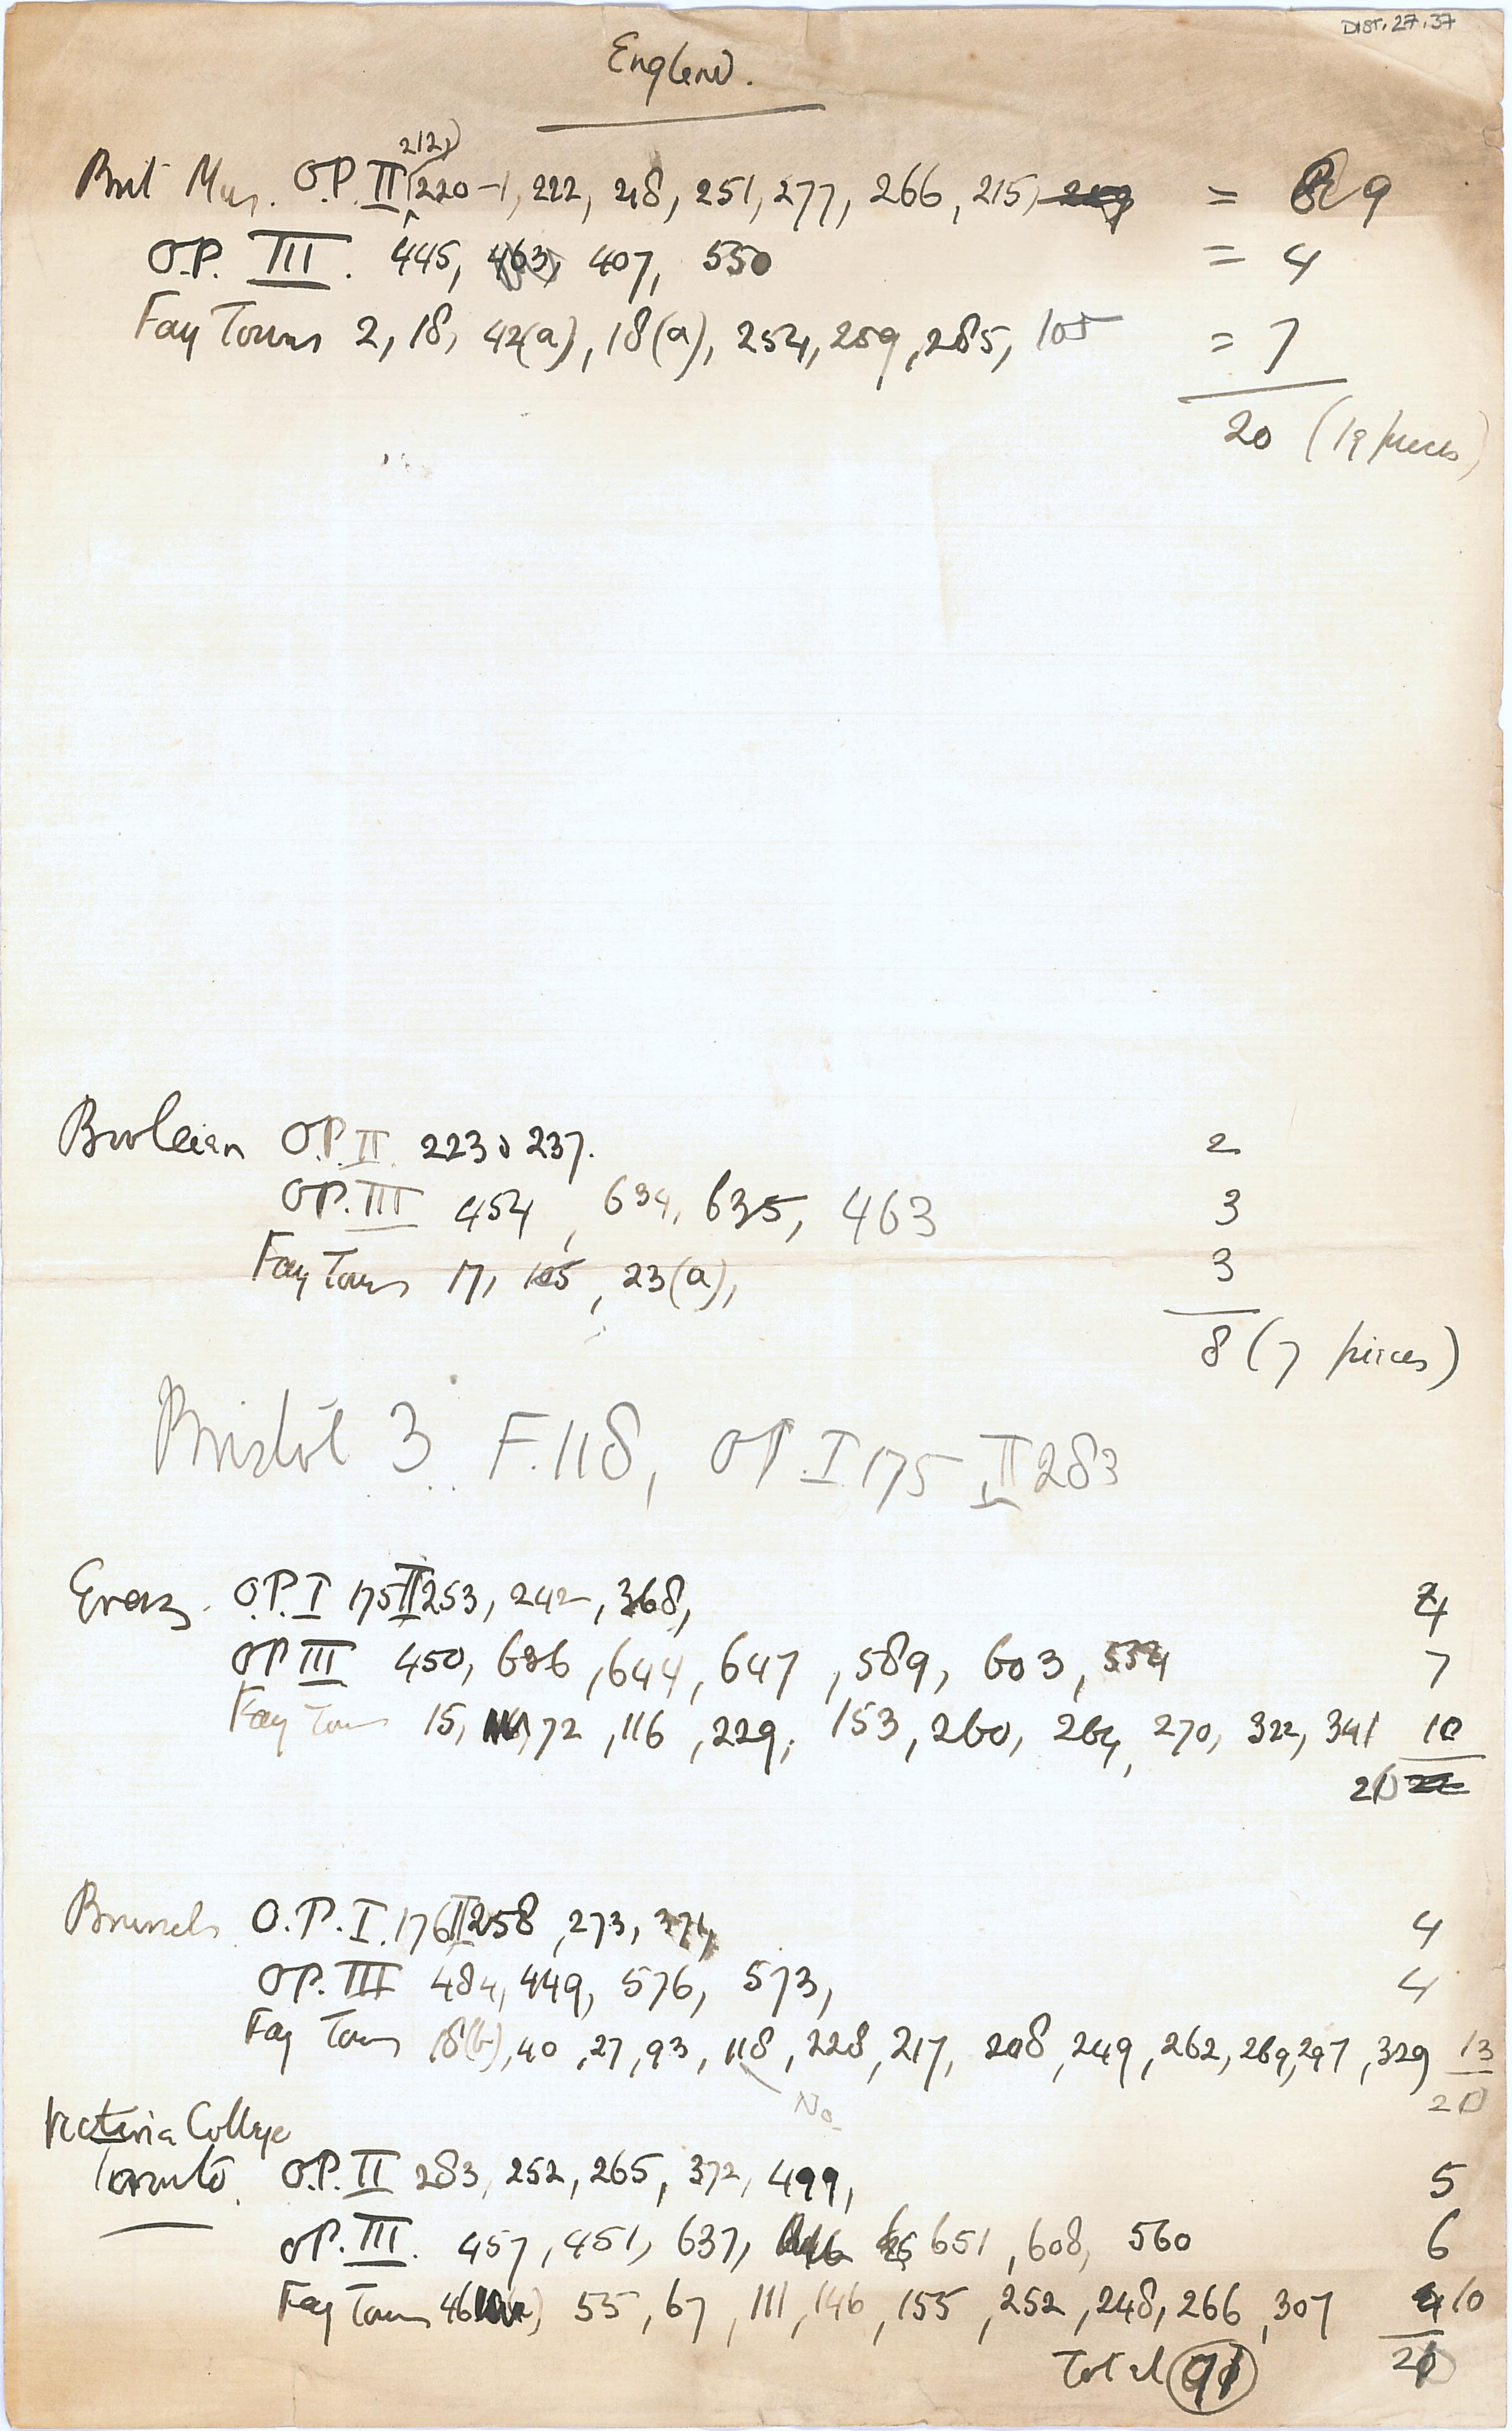 DIST. 27.37
England.
212)
Brit Mus. O.P. II (220-1, 222, 218, 251, 277, 266, 215, = 9
O.P. III. 445, 463, 407, 550 = 4
Fay Towns 2, 18, 42(a), 18(a), 254, 259, 285, 105 = 7
20 (19 pieces)
Bodleian O.P. II. 223, 237. 2
O.P. III 454, 634, 635, 463 3
Fay Towns 17, 105, 23(a), 3
8 (7 pieces)
Bristol 3. F. 118, O.P. I 175 II 283
Graz. O.P. I 175 II 253, 242, 368, 4
O.P. III 450, 636, 644, 647, 589, 603, 554 7
Fay Towns 15, 72, 116, 229, 153, 260, 264, 270, 322, 341 10
21
Brussels O.P. I. 176 II 258, 273, 374, 4
O.P. III 484, 449, 576, 573, 4
Fay Towns 18(b), 40, 27, 93, 118, 228, 217, 208, 249, 262, 269, 297, 329 13
No 20
Victoria College
Toronto. O.P. II 283, 252, 265, 372, 499, 5
O.P. III. 457, 451, 637, 651, 608, 560 6
Fay Towns 46 55, 67, 111, 146, 155, 252, 248, 266, 307 10
Total 91 20